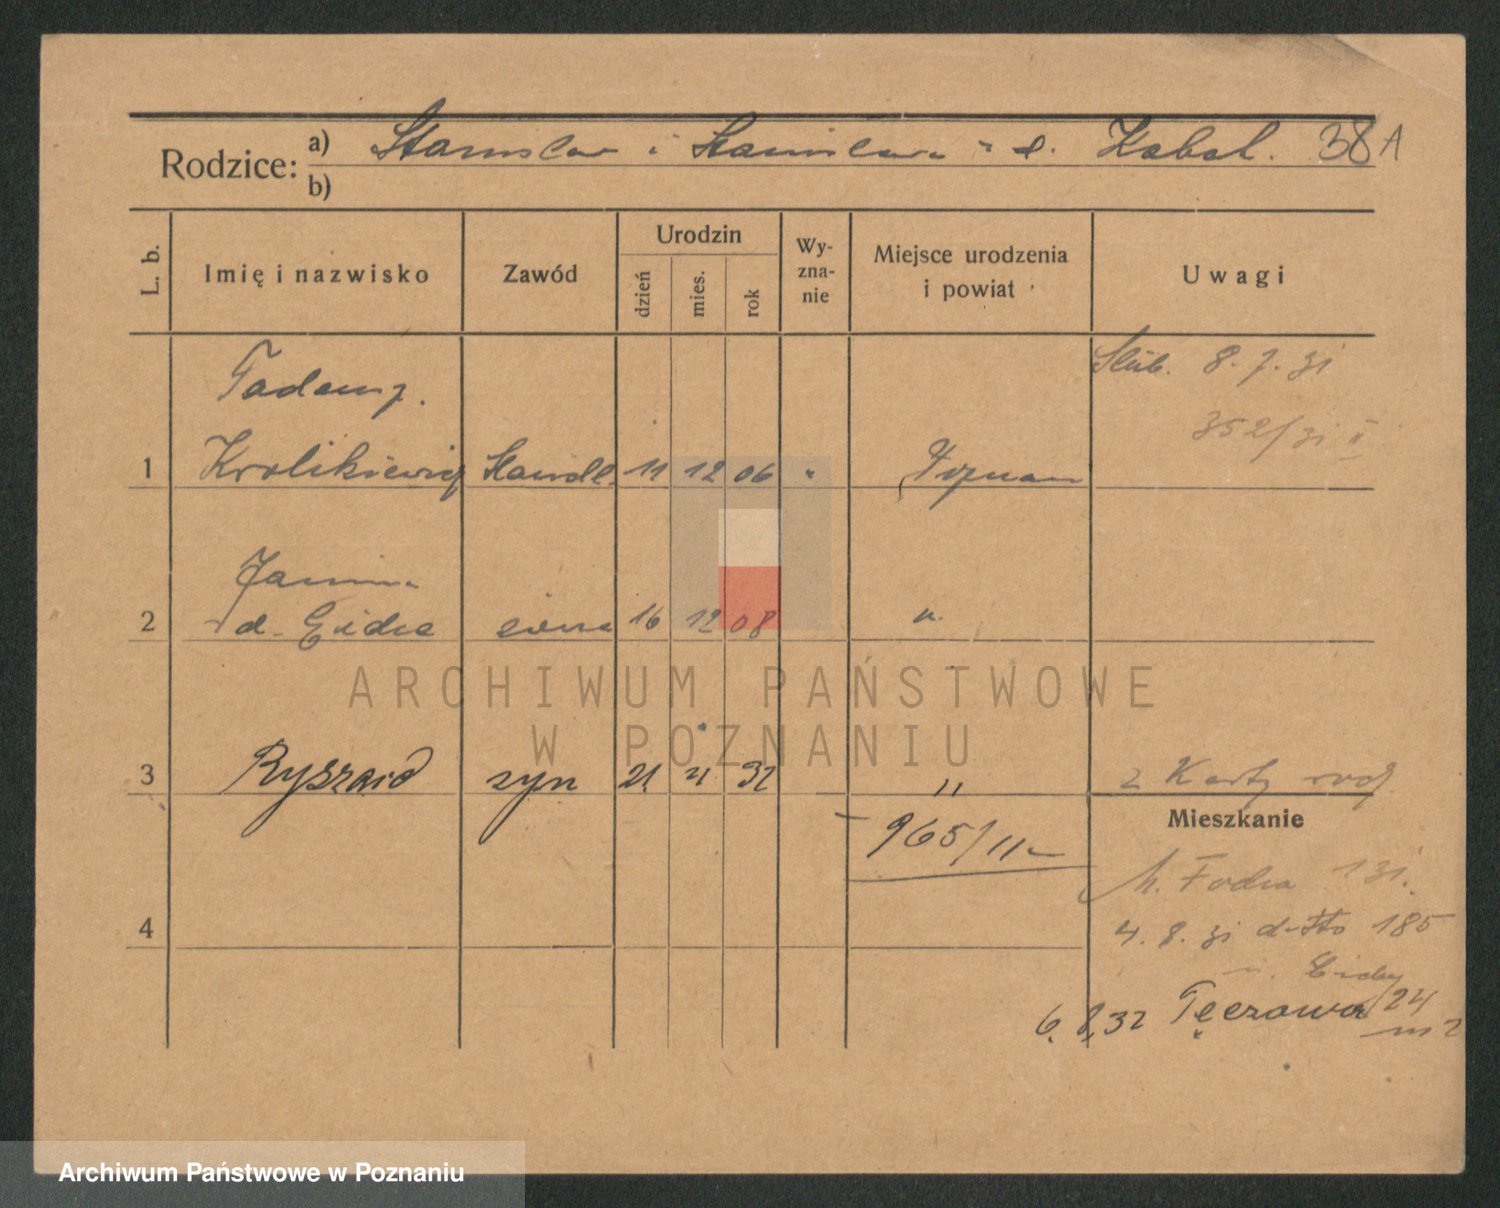 Rodzice: a) Stanisław i Stanisława z d. Kabat. 38A
b)
L. b. Imię i nazwisko Zawód Urodzin dzień mies. rok Wy-zna-nie Miejsce urodzenia i powiat Uwagi
Ślub. 8. 7. 31
Tadeusz.
352/31 II
1 Krolikiewicz Handl. 11 12 06 " Poznan
Janina
2 d. Eidea 16 12 08 "
ARCHIWUM PAŃSTWOWE
W POZNANIU
3 Ryszard syn 21 4 32 " z Karty rodz.
Mieszkanie
965/11
4
4. 8. 31 d-tto 185
6. 8. 32 Tęczowa 24
m 2
Archiwum Państwowe w Poznaniu